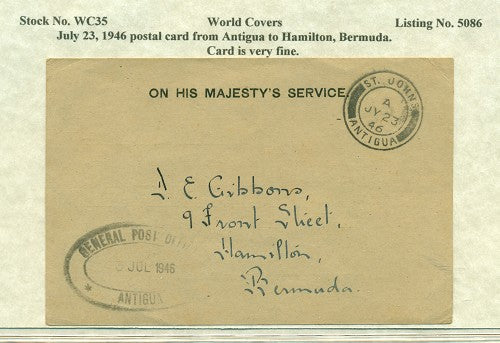 Stock No. WC35 World Covers Listing No. 5086
July 23, 1946 postal card from Antigua to Hamilton, Bermuda.
Card is very fine.
ON HIS MAJESTY'S SERVICE.
ST. JOHNS
A
JY 23
46
ANTIGUA
E Gibbons,
9 Front Street,
Hamilton,
Bermuda.
GENERAL POST
JUL 1946
* ANTIGUA